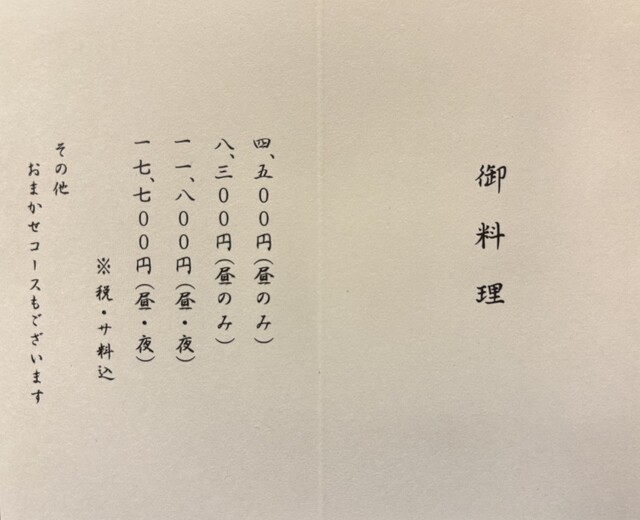 御料理
四、五００円（昼のみ）
八、三００円（昼のみ）
一一、八００円（昼・夜）
一七、七００円（昼・夜）
※税・サ料込
その他
おまかせコースもございます